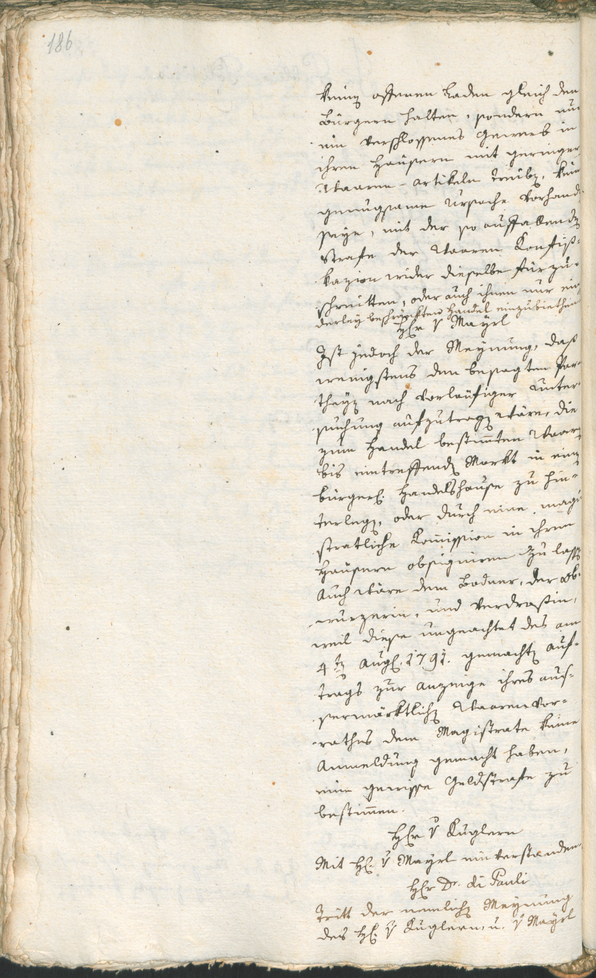 186
keinn offenen Laden gleich den
Bürgern halten, sondern nur
ein verschlossenes Gewerb in
ihren Häusern mit geringen
Waaren-Artikeln treiben, keine
genugsame Ursache vorhand
seye, mit der so auffallenden
Strafe der Waaren Konfis-
kazion wider dieselbe fürzu-
schreitten, oder auch ihnen nur ein
derley beschränkten Handel einzubiethen
Hr. v. Mayrl
Ist jedoch der Meynung, daß
wenigstens den besagten Par-
theyen nach vorläufiger Unter-
suchung aufzutragen wäre, die
zum Handel bestimmten Waaren
bis eintreffenden Markt in einem
bürgerl. Handelshause zu hin-
terlegen, oder durch eine magi-
stratliche Kommission in ihren
Häusern obsigniren zu lassen
Auch wäre dem Bodner, der
und
weil diese ungeachtet des am
4ten Augl. 1791. gemachten Auf-
trags zur Anzeige ihres aus-
sermärktlichen Waarenvor-
rathes dem Magistrate keine
Anmeldung gemacht haben,
eine gewisse Geldstrafe zu
bestimmen.
Hr. v. Kuglern
Mit H. v. Mayrl einverstanden
Hr. Dr. di Pauli
Tritt der nemlichen Meynung
des H. v. Kuglern, u. v. Mayrl